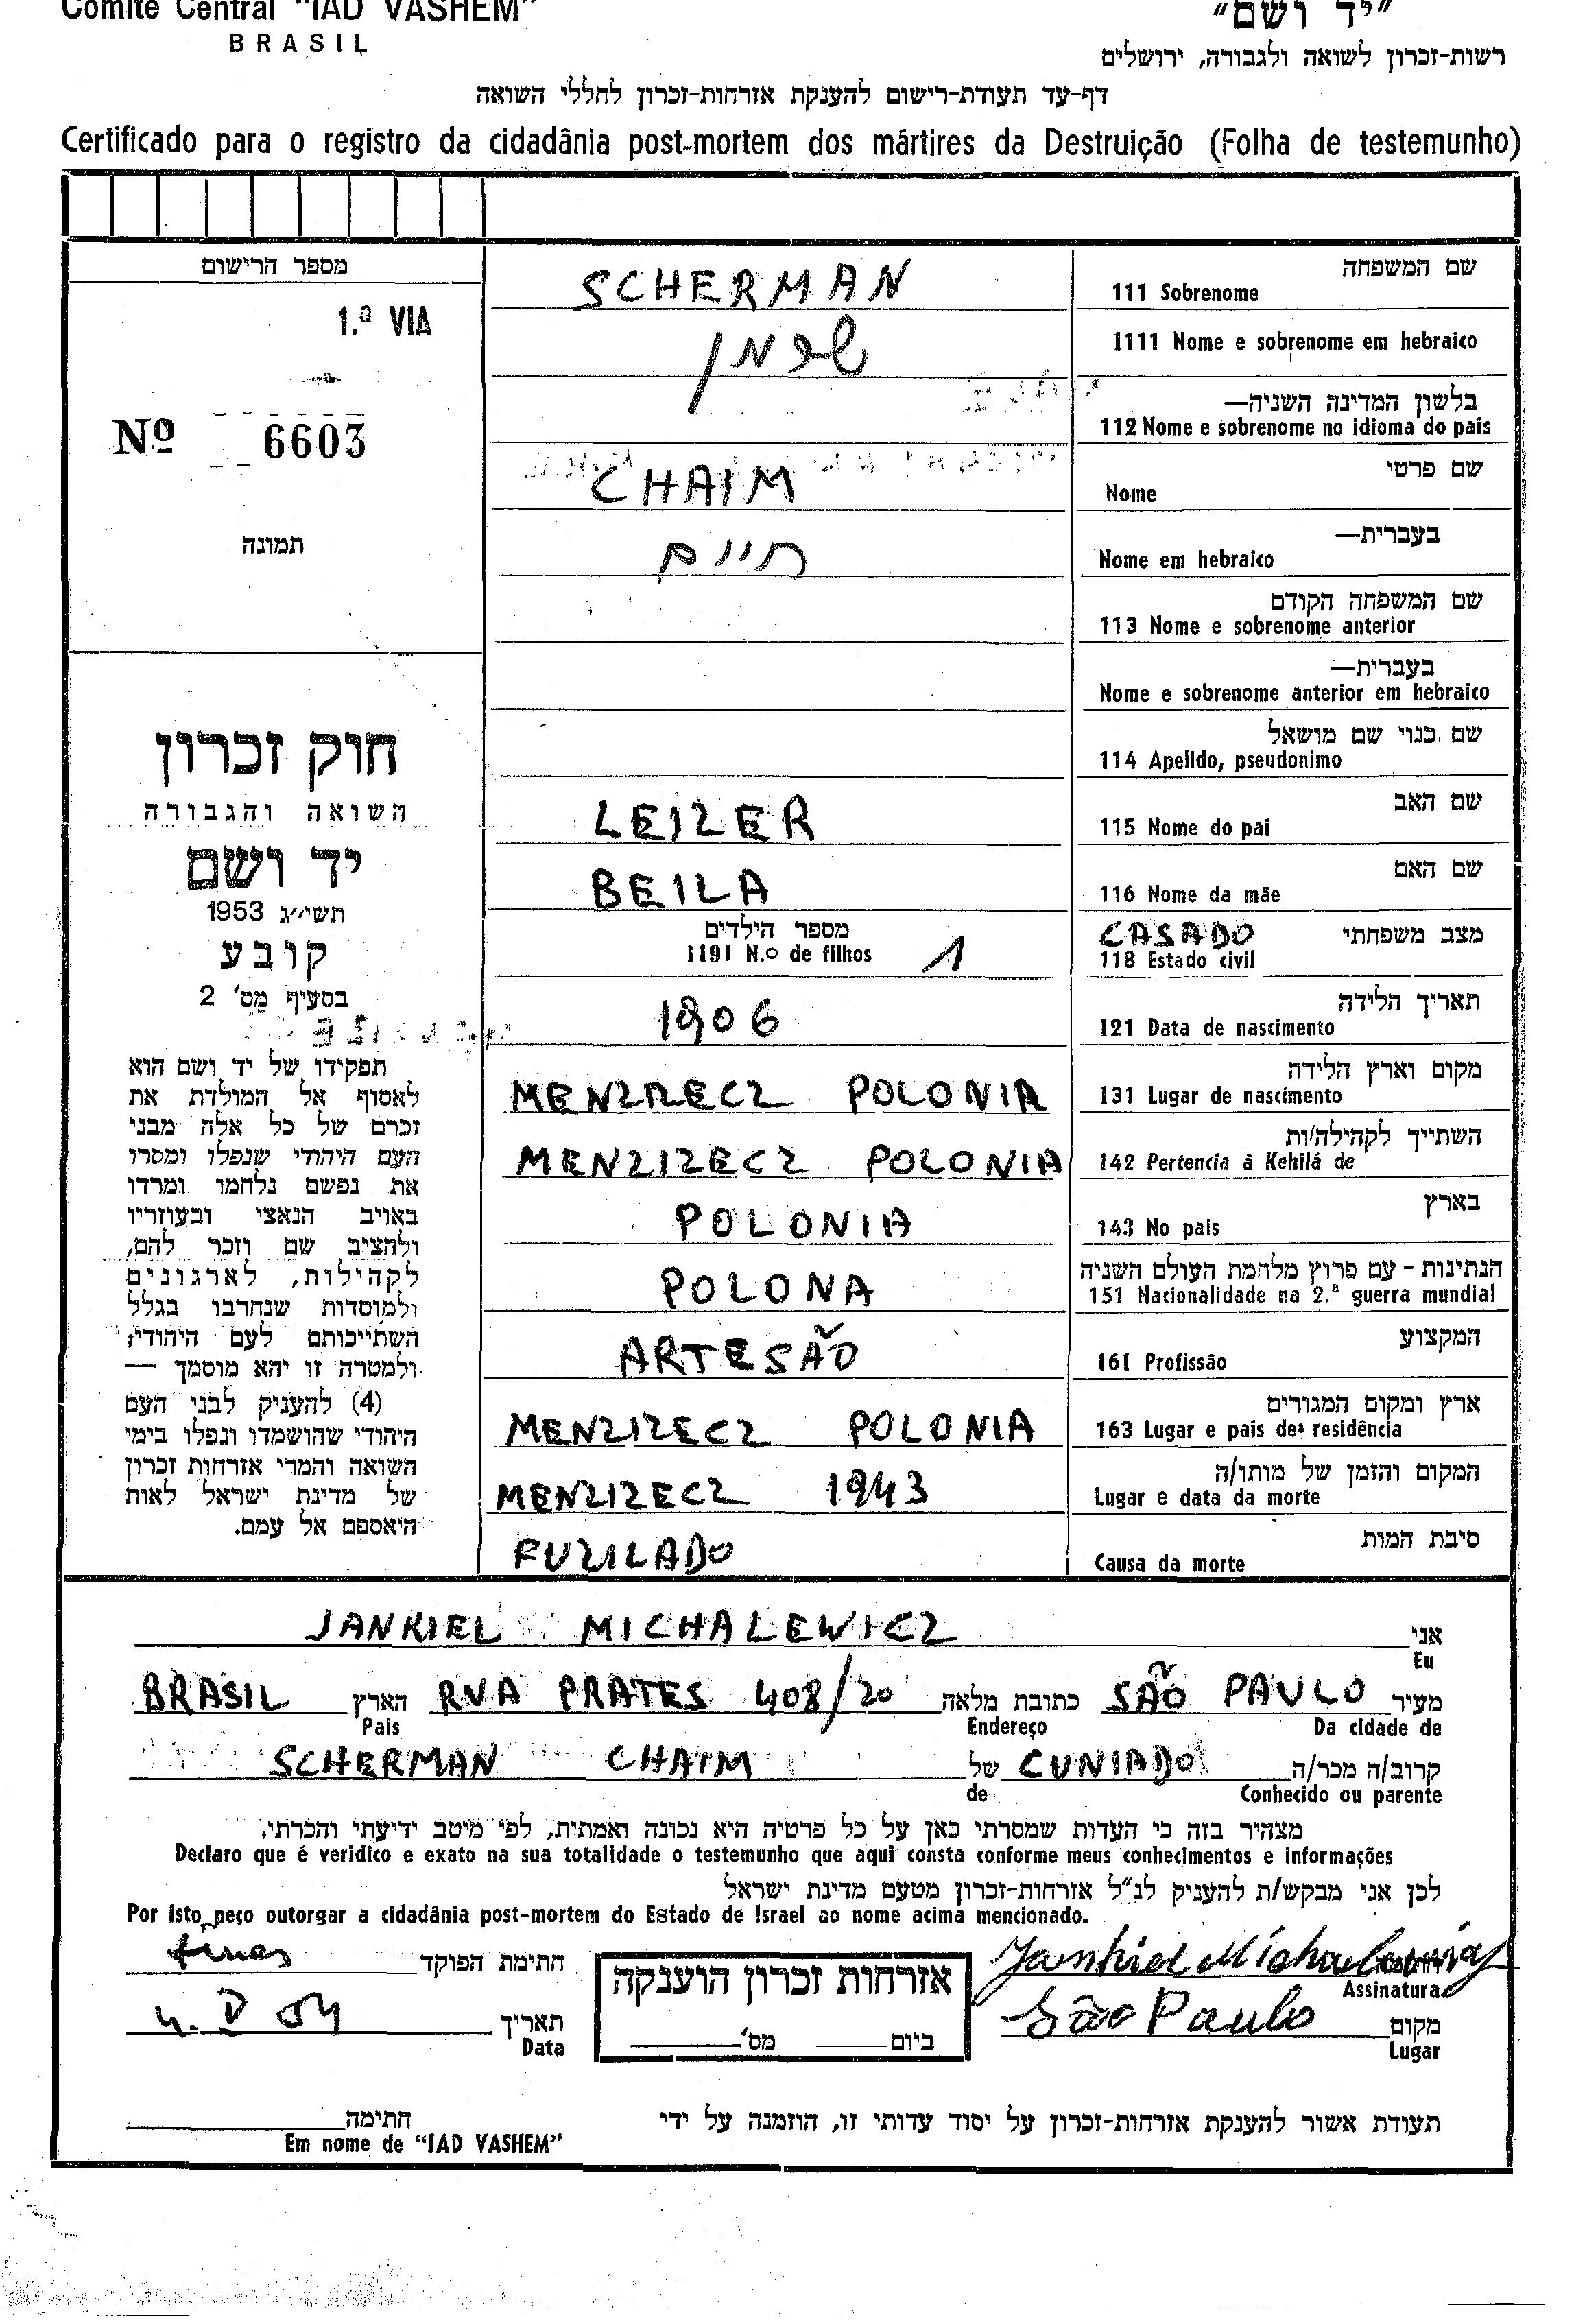 Comité Central "IAD VASHEM"
BRASIL
"יד ושם"
רשות-זכרון לשואה ולגבורה, ירושלים
דף-עד תעודת-רישום להענקת אזרחות-זכרון לחללי השואה
Certificado para o registro da cidadânia post-mortem dos mártires da Destruição (Folha de testemunho)
מספר הרישום
1.ª VIA
Nº 6603
תמונה
חוק זכרון
השואה והגבורה
יד ושם
תשי״ג 1953
קובע
בסעיף מס' 2
תפקידו של יד ושם הוא
לאסוף אל המולדת את
זכרם של כל אלה מבני
העם היהודי שנפלו ומסרו
את נפשם נלחמו ומרדו
באויב הנאצי ובעוזריו
ולהציב שם וזכר להם,
לקהילות, לארגונים
ולמוסדות שנחרבו בגלל
השתייכותם לעם היהודי;
ולמטרה זו יהא מוסמך —
(4) להעניק לבני העם
היהודי שהושמדו ונפלו בימי
השואה והמרי אזרחות זכרון
של מדינת ישראל לאות
היאספם אל עמם.
שם המשפחה
111 Sobrenome SCHERMAN
1111 Nome e sobrenome em hebraico שרמן
בלשון המדינה השניה—
112 Nome e sobrenome no idioma do pais
שם פרטי
Nome CHAIM
בעברית—
Nome em hebraico חיים
שם המשפחה הקודם
113 Nome e sobrenome anterior
בעברית—
Nome e sobrenome anterior em hebraico
שם כנוי שם מושאל
114 Apelido, pseudonimo
שם האב
115 Nome do pai LEIZER
שם האם
116 Nome da mãe BEILA
מצב משפחתי CASADO
118 Estado civil
מספר הילדים
1191 N.º de filhos 1
תאריך הלידה
121 Data de nascimento 1906
מקום וארץ הלידה
131 Lugar de nascimento MENZIZECZ POLONIA
השתייך לקהילה/ות
142 Pertencia à Kehilá de MENZIZECZ POLONIA
בארץ
143 No pais POLONIA
הנתינות - עם פרוץ מלחמת העולם השניה
151 Nacionalidade na 2.ª guerra mundial POLONA
המקצוע
161 Profissão ARTESÃO
ארץ ומקום המגורים
163 Lugar e pais de residência MENZIZECZ POLONIA
המקום והזמן של מותו/ה
Lugar e data da morte MENZIZECZ 1943
סיבת המות
Causa da morte FUZILADO
אני JANKIEL MICHALEWICZ
Eu
מעיר SÃO PAULO כתובת מלאה RUA PRATES 408/20 הארץ BRASIL
Da cidade de Endereço Pais
קרוב/ה מכר/ה CUNIADO של SCHERMAN CHAIM
Conhecido ou parente de
מצהיר בזה כי העדות שמסרתי כאן על כל פרטיה היא נכונה ואמתית, לפי מיטב ידיעתי והכרתי.
Declaro que é veridico e exato na sua totalidade o testemunho que aqui consta conforme meus conhecimentos e informações
לכן אני מבקש/ת להעניק לנ״ל אזרחות-זכרון מטעם מדינת ישראל
Por isto peço outorgar a cidadânia post-mortem do Estado de Israel ao nome acima mencionado.
Jankiel Michalewicz
Assinatura
חתימת הפוקד
אזרחות זכרון הוענקה
ביום מס'
מקום São Paulo
Lugar
תאריך
Data
תעודת אשור להענקת אזרחות-זכרון על יסוד עדותי זו, הוזמנה על ידי
חתימה
Em nome de "IAD VASHEM"